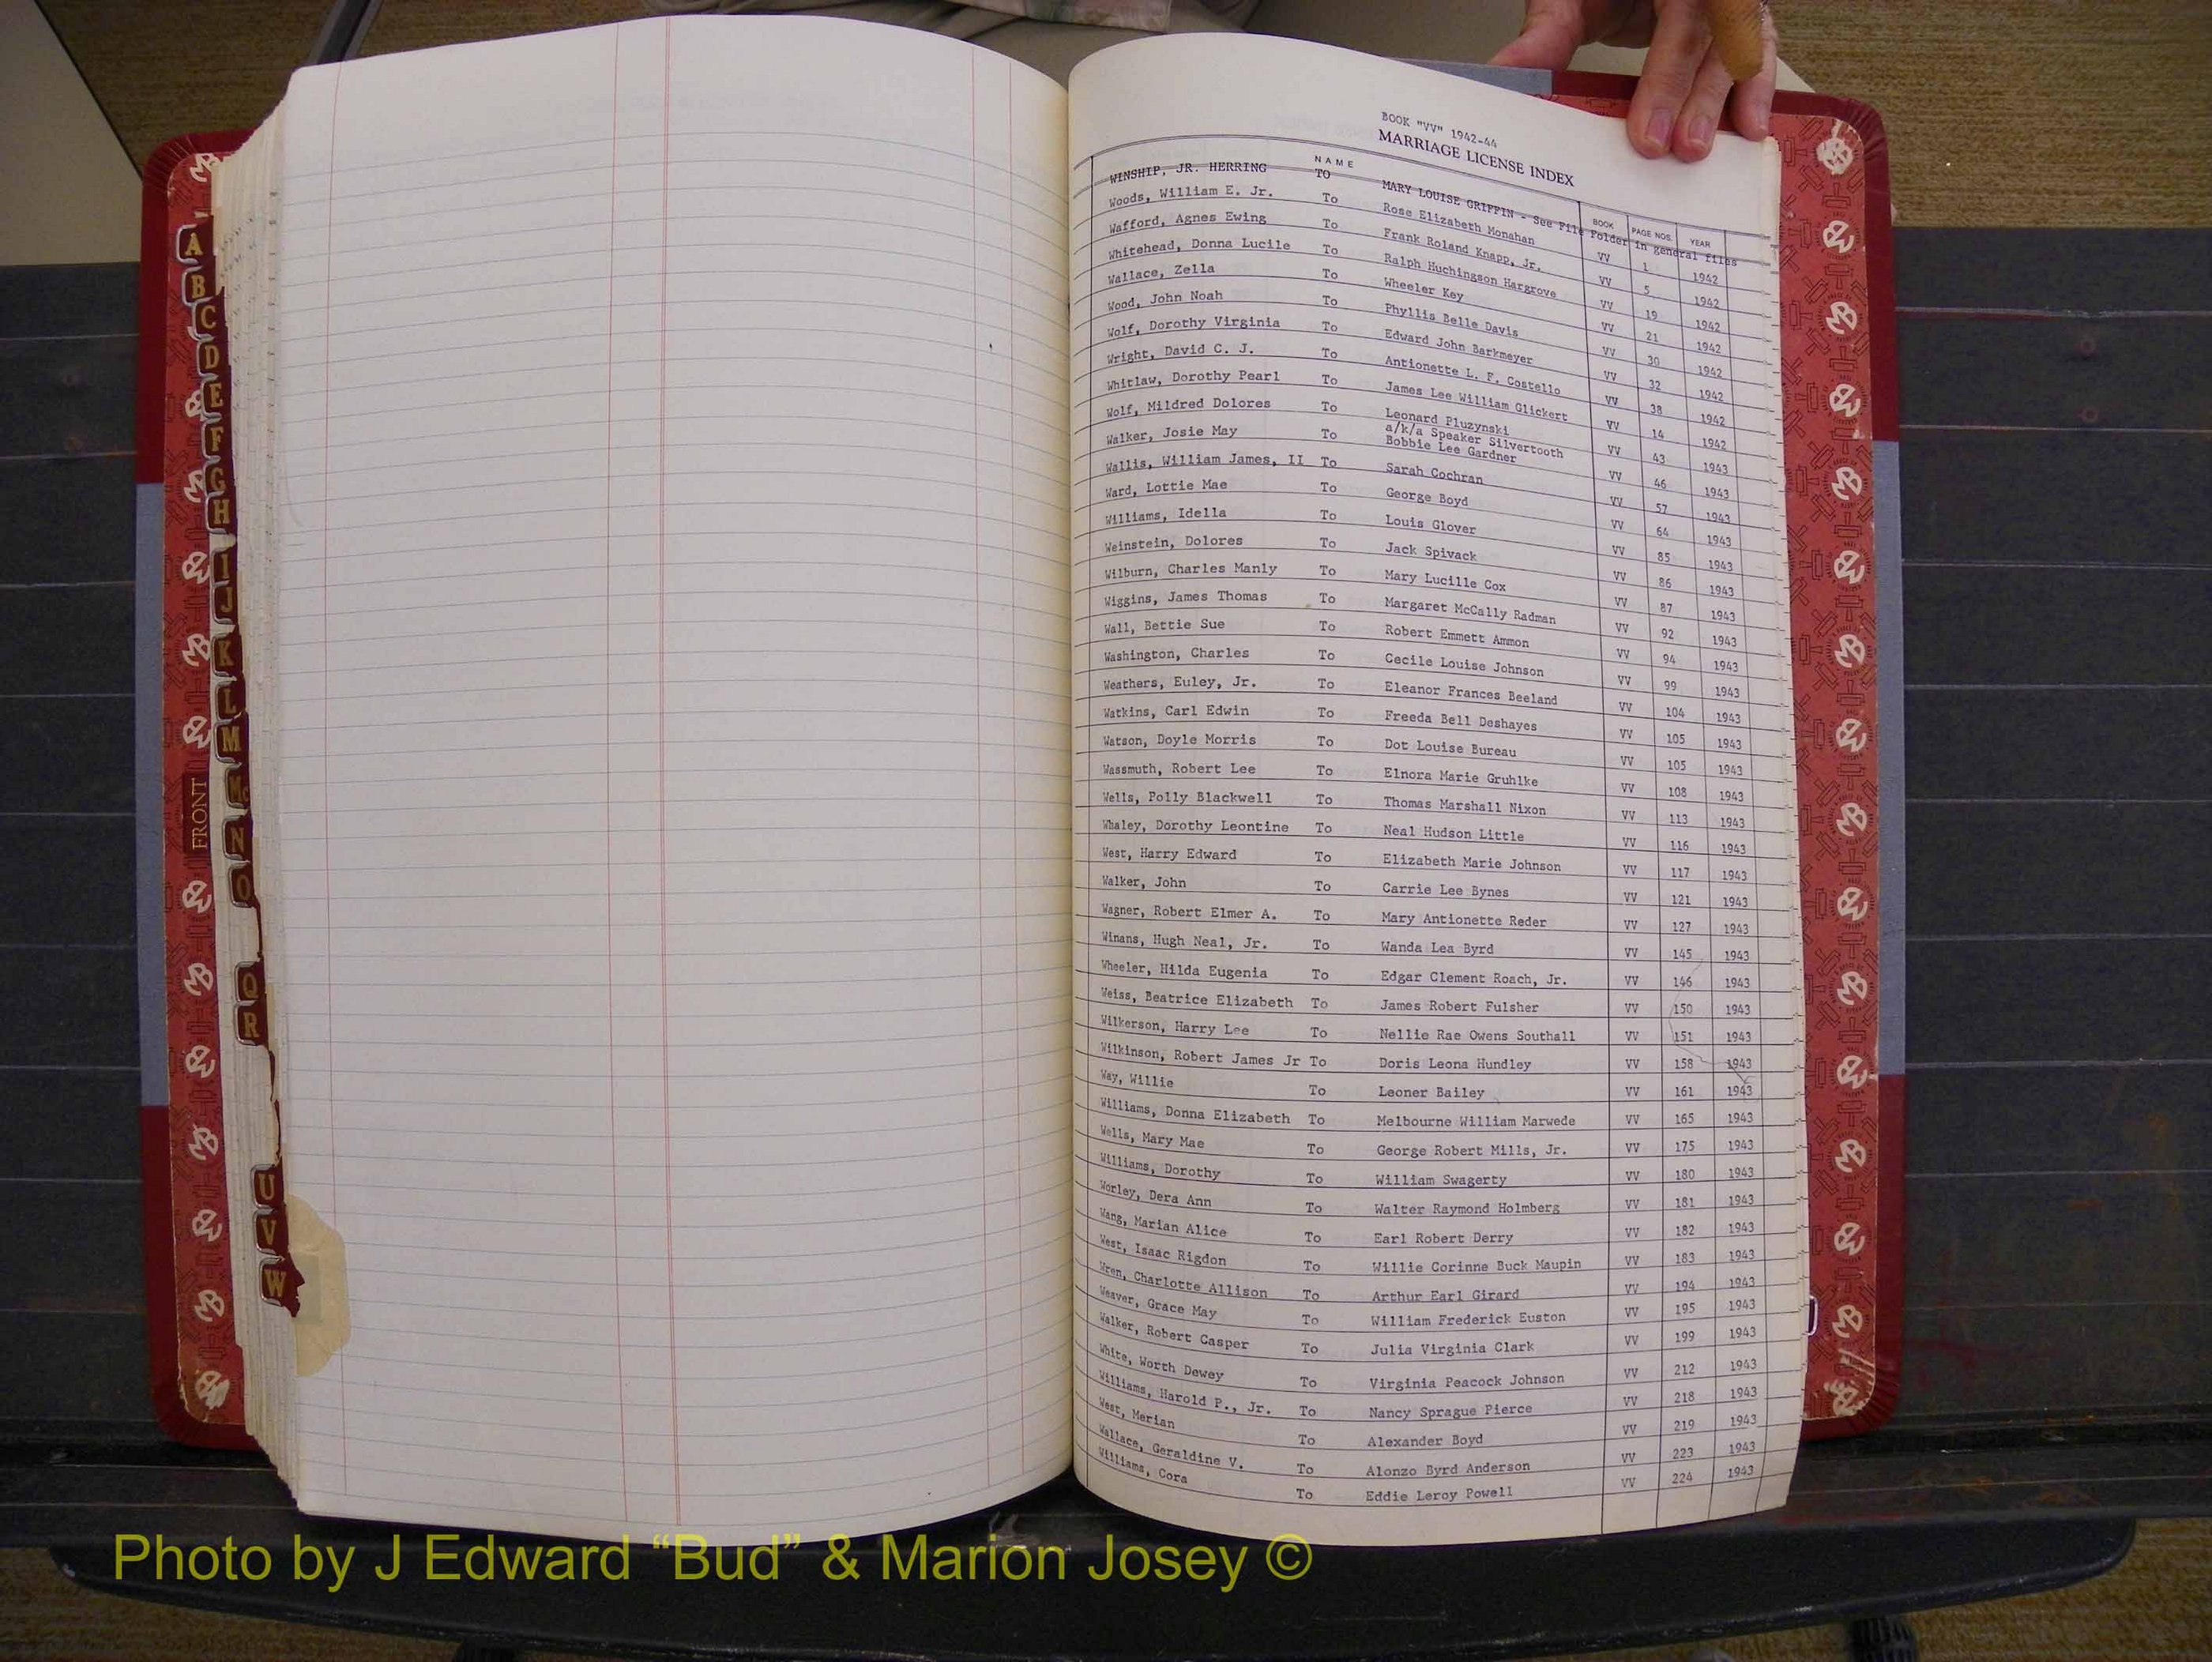 BOOK "VV" 1942-44
MARRIAGE LICENSE INDEX
NAME BOOK PAGE NOS. YEAR
WINSHIP, JR. HERRING TO MARY LOUISE GRIFFIN - See File Folder in general files
Woods, William E. Jr. To Rose Elizabeth Monahan VV 1 1942
Wafford, Agnes Ewing To Frank Roland Knapp, Jr. VV 5 1942
Whitehead, Donna Lucile To Ralph Huchingson Hargrove VV 19 1942
Wallace, Zella To Wheeler Key VV 21 1942
Wood, John Noah To Phyllis Belle Davis VV 30 1942
Wolf, Dorothy Virginia To Edward John Barkmeyer VV 32 1942
Wright, David C. J. To Antionette L. F. Costello VV 38 1942
Whitlaw, Dorothy Pearl To James Lee William Glickert VV 14 1942
Wolf, Mildred Dolores To Leonard Pluzynski VV 43 1943
a/k/a Speaker Silvertooth
Walker, Josie May To Bobbie Lee Gardner VV 46 1943
Wallis, William James, II To Sarah Cochran VV 57 1943
Ward, Lottie Mae To George Boyd VV 64 1943
Williams, Idella To Louis Glover VV 85 1943
Weinstein, Dolores To Jack Spivack VV 86 1943
Wilburn, Charles Manly To Mary Lucille Cox VV 87 1943
Wiggins, James Thomas To Margaret McCally Radman VV 92 1943
Wall, Bettie Sue To Robert Emmett Ammon VV 94 1943
Washington, Charles To Cecile Louise Johnson VV 99 1943
Weathers, Euley, Jr. To Eleanor Frances Beeland VV 104 1943
Watkins, Carl Edwin To Freeda Bell Deshayes VV 105 1943
Watson, Doyle Morris To Dot Louise Bureau VV 105 1943
Wassmuth, Robert Lee To Elnora Marie Gruhlke VV 108 1943
Wells, Polly Blackwell To Thomas Marshall Nixon VV 113 1943
Whaley, Dorothy Leontine To Neal Hudson Little VV 116 1943
West, Harry Edward To Elizabeth Marie Johnson VV 117 1943
Walker, John To Carrie Lee Bynes VV 121 1943
Wagner, Robert Elmer A. To Mary Antionette Reder VV 127 1943
Winans, Hugh Neal, Jr. To Wanda Lea Byrd VV 145 1943
Wheeler, Hilda Eugenia To Edgar Clement Roach, Jr. VV 146 1943
Weiss, Beatrice Elizabeth To James Robert Fulsher VV 150 1943
Wilkerson, Harry Lee To Nellie Rae Owens Southall VV 151 1943
Wilkinson, Robert James Jr To Doris Leona Hundley VV 158 1943
Way, Willie To Leoner Bailey VV 161 1943
Williams, Donna Elizabeth To Melbourne William Marwede VV 165 1943
Wells, Mary Mae To George Robert Mills, Jr. VV 175 1943
Williams, Dorothy To William Swagerty VV 180 1943
Worley, Dera Ann To Walter Raymond Holmberg VV 181 1943
Wang, Marian Alice To Earl Robert Derry VV 182 1943
West, Isaac Rigdon To Willie Corinne Buck Maupin VV 183 1943
Wren, Charlotte Allison To Arthur Earl Girard VV 194 1943
Weaver, Grace May To William Frederick Euston VV 195 1943
Walker, Robert Casper To Julia Virginia Clark VV 199 1943
White, Worth Dewey To Virginia Peacock Johnson VV 212 1943
Williams, Harold P., Jr. To Nancy Sprague Pierce VV 218 1943
West, Merian To Alexander Boyd VV 219 1943
Wallace, Geraldine V. To Alonzo Byrd Anderson VV 223 1943
Williams, Cora To Eddie Leroy Powell VV 224 1943
A
B
C
D
E
F
G
H
I
J
K
L
M
Mc
N
O
Q
R
U
V
W
FRONT
Photo by J Edward “Bud” & Marion Josey ©